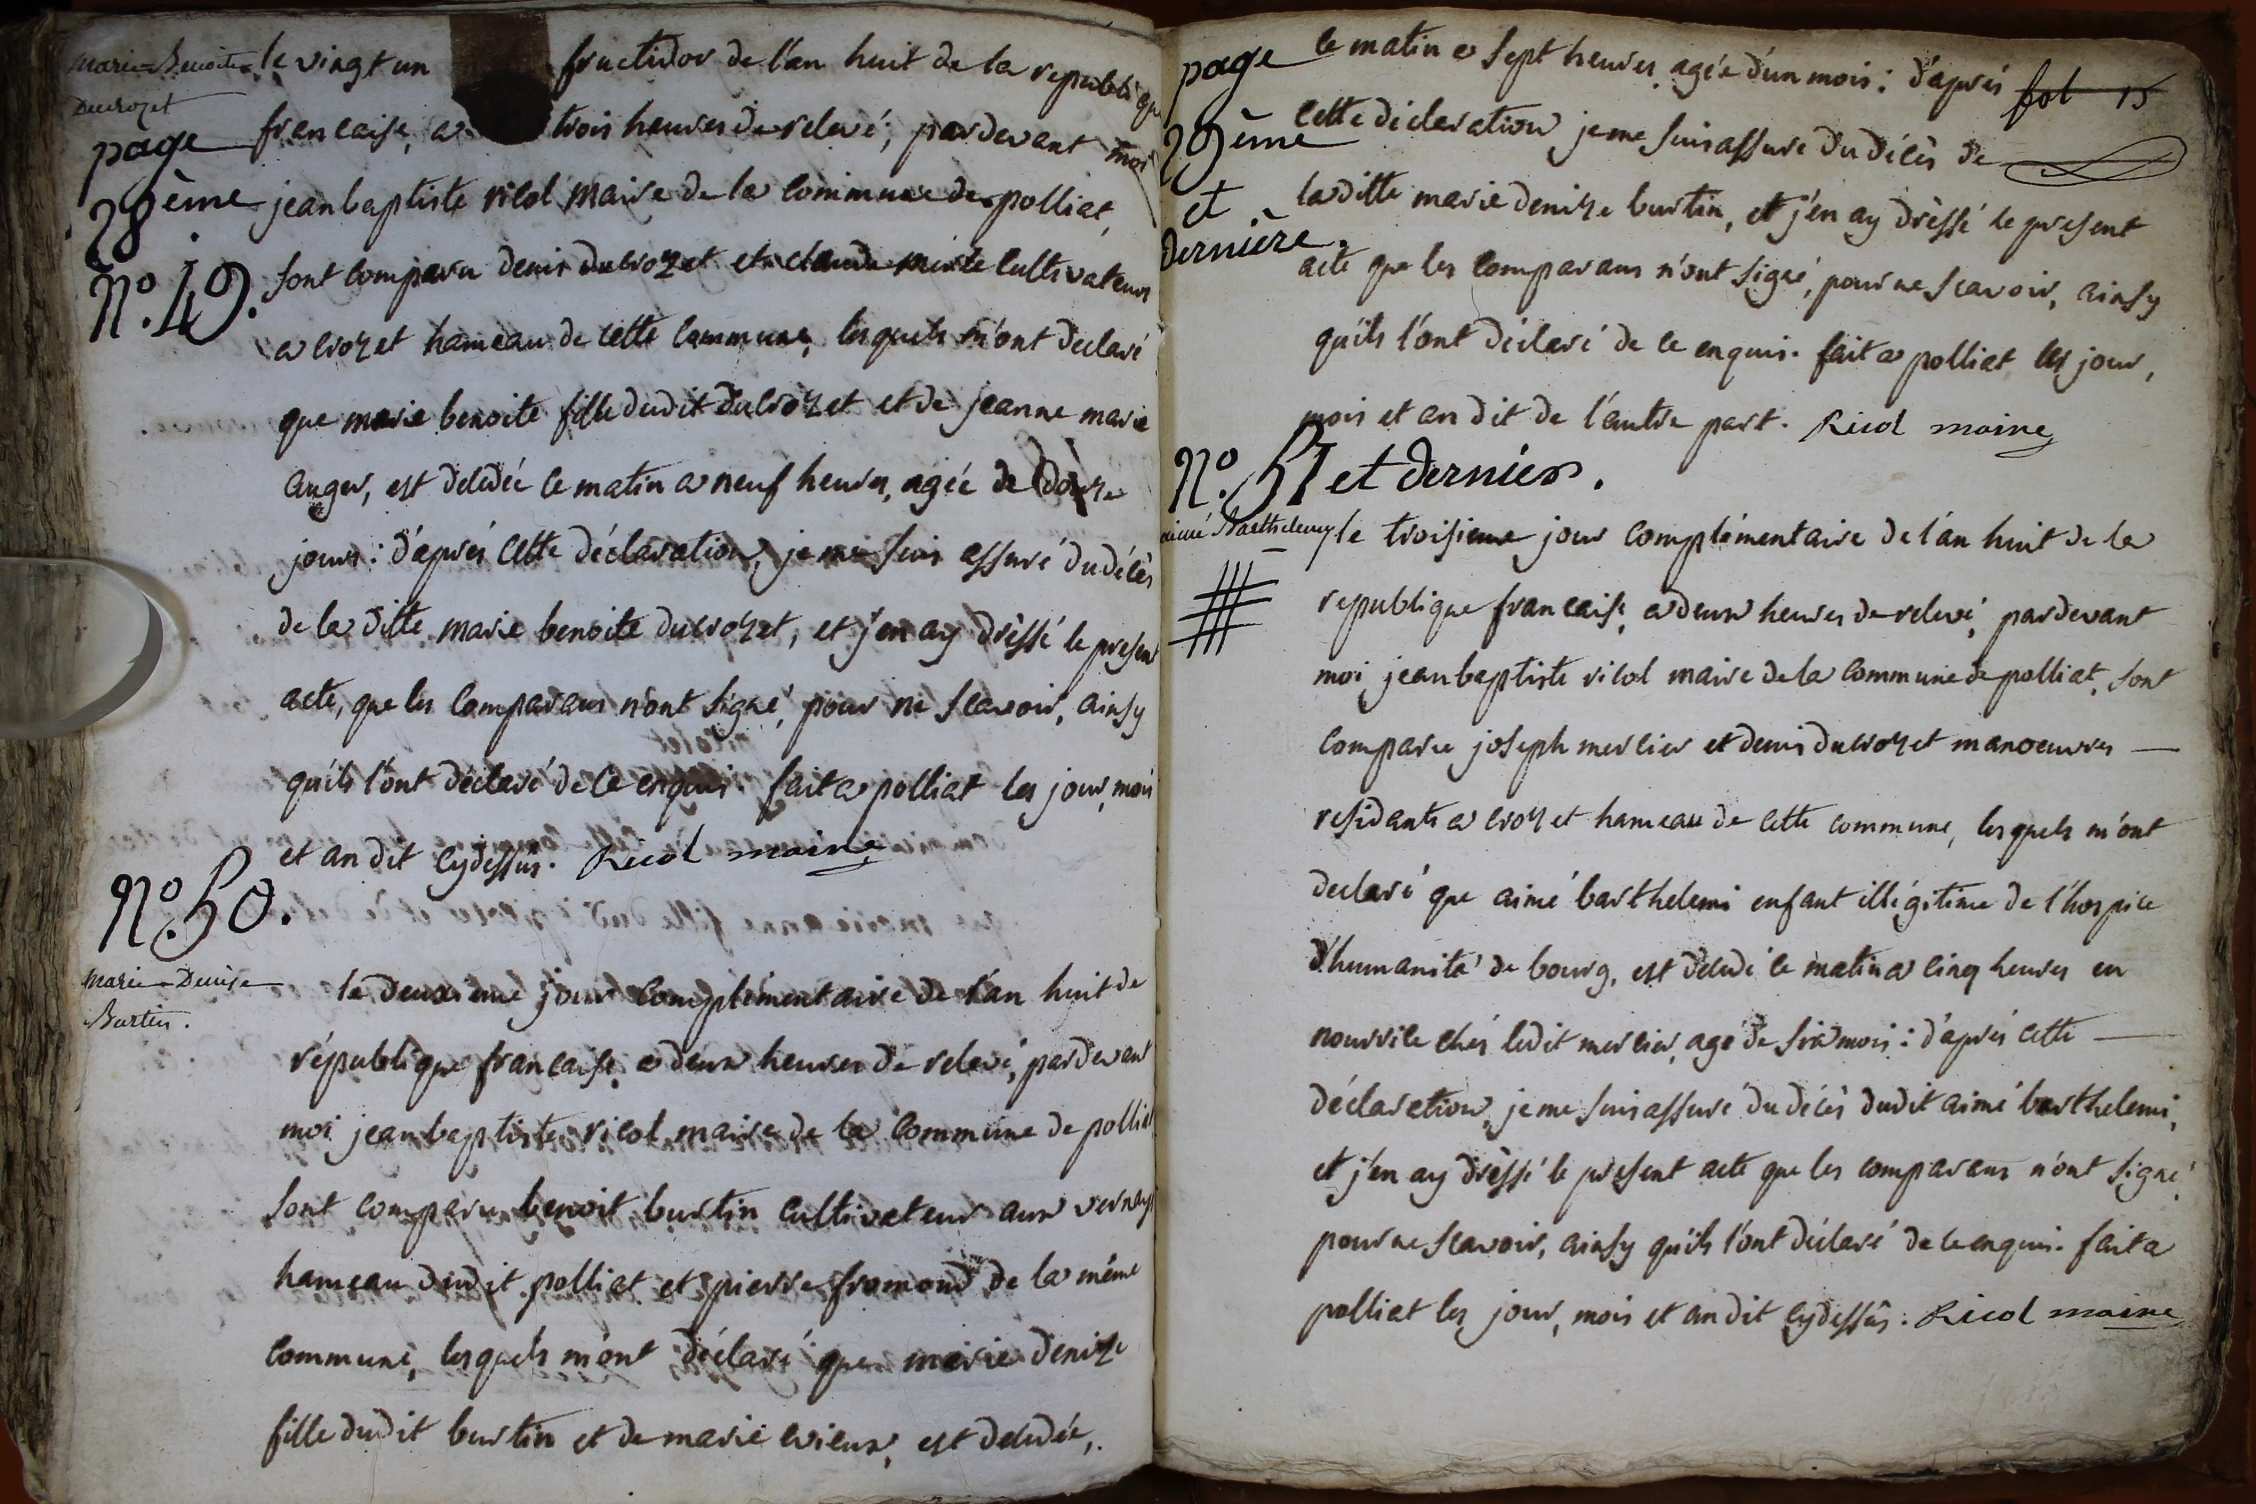 Marie Benoite
Ducrozet
page
28ème
N°. 49.
le vingt un fructidor de l'an huit de la republique
francaise, a trois heures de relevé, pardevant moi
jean baptiste ricol maire de la commune de polliat,
sont comparu denis ducrozet et claude cultivateurs
a crozet hameau de cette commune, lesquels m'ont declaré
que marie benoite fille dudit ducrozet et de jeanne marie
auger, est deludée ce matin a neuf heures, agée de douze
jours : d'aprés cette déclaration, je me suis assuré du décès
de la ditte marie benoite ducrozet, et j'en ay dressé le present
acte, que les comparans n'ont signé, pour ne scavoir, ainsy
qu'ils l'ont déclaré de ce enquis. fait a polliat les jour, mois
et an dit cydessus. Ricol maire
N°. 50.
Marie Denise
Burtin.
le deuxieme jour complémentaire de l'an huit de
république francaise, a deux heures de relevé, pardevant
moi jean baptiste ricol maire de la commune de polliat
sont comparu benoit burtin cultivateur aux vernays
hameau dudit polliat et pierre fromond de la même
commune, lesquels m'ont déclaré que marie denize
fille dudit burtin et de marie crieux, est deludée,
page
29ème
et
dernière.
fol 15
ce matin a sept heures, agée d'un mois : d'aprés
cette déclaration je me suis assuré du décès de
la ditte marie denize burtin, et j'en ay dressé le present
acte que les comparans n'ont signé, pour ne scavoir, ainsy
qu'ils l'ont déclaré de ce enquis. fait a polliat les jour,
mois et an dit de l'autre part. Ricol maire
N°. 51 et dernier.
aimé Barthelemy
le troisieme jour complémentaire de l'an huit de la
republique francaise, a deux heures de relevé, pardevant
moi jean baptiste ricol maire de la commune de polliat, sont
comparu joseph mercier et denis ducrozet manoeuvres
residants a crozet hameau de cette commune, lesquels m'ont
declaré que aimé barthelemi enfant illégitime de l'hospice
d'humanité de bourg, est deludé ce matin a cinq heures en
nourrice chés ledit mercier, agé de six mois : d'aprés cette
déclaration, je me suis assuré du décès dudit aimé barthelemi,
et j'en ay dressé le present acte que les comparans n'ont signé,
pour ne scavoir, ainsy qu'ils l'ont déclaré de ce enquis. fait a
polliat les jour, mois et an dit cydessus. Ricol maire